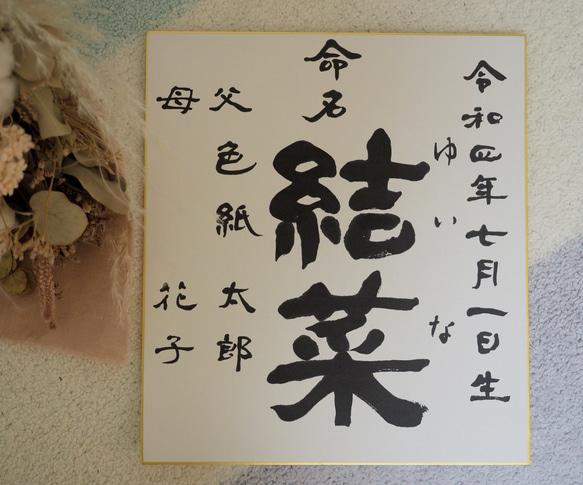 令和四年七月一日生
ゆいな
命名
結菜
父 色紙 太郎
母 花子